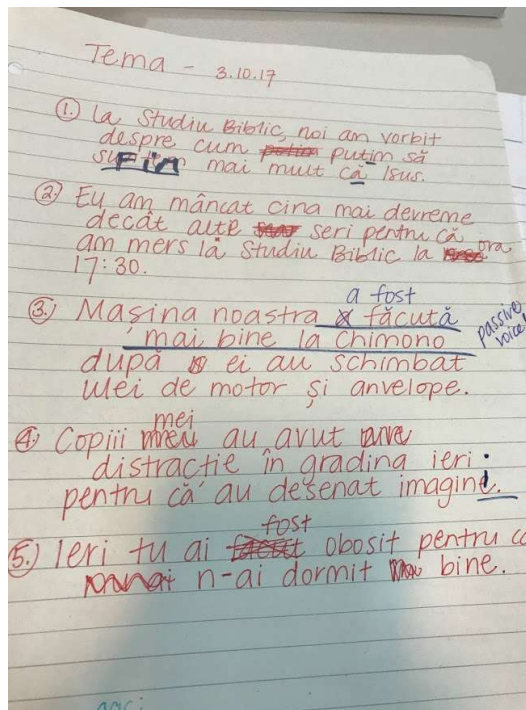 Tema - 3.10.17
1. La Studiu Biblic, noi am vorbit
despre cum putim să
Fim mai mult ca Isus.
2. Eu am mâncat cina mai devreme
decât alte seri pentru că
am mers la Studiu Biblic la ora
17:30.
3. Mașina noastra a fost făcută
mai bine la Chimono
passive voice!
după ei au schimbat
ulei de motor și anvelope.
4. Copiii mei au avut
distracție în gradina ieri
pentru că au desenat imagini.
5. Ieri tu ai fost obosit pentru că
n-ai dormit bine.